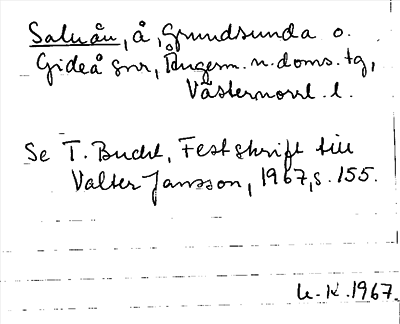 Saluån, å, Grundsunda o.
Gideå snr, Ångerm. n. doms. tg,
Västernorrl. l.
Se T. Bucht, Festskrift till
Valter Jansson, 1967, s. 155.
U.K. 1967.